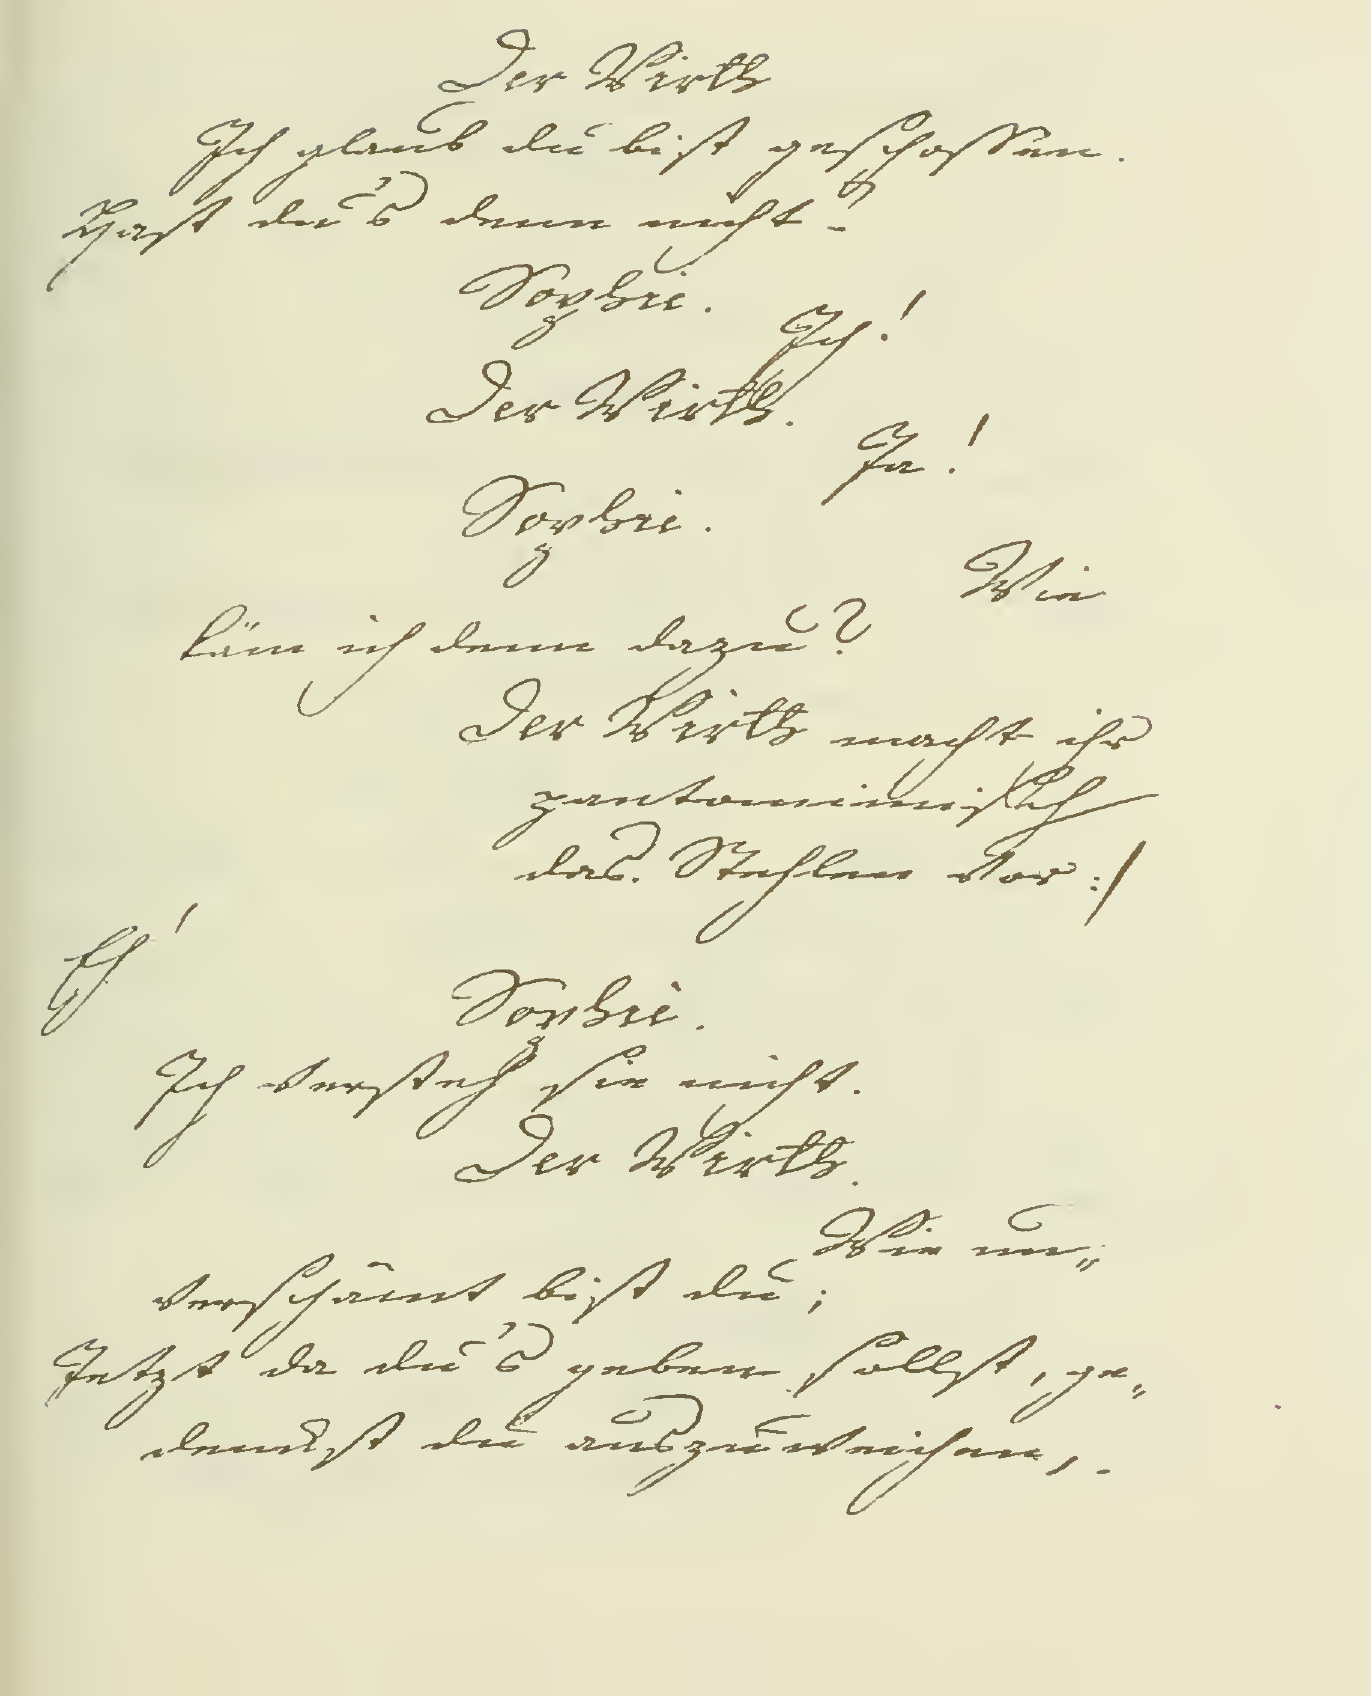 Der Wirth
Ich glaub du bist geschossen.
Hast du's denn nicht?
Sophie.
Ich!
Der Wirth.
Ja!
Sophie.
Wie
käm ich denn dazu?
Der Wirth macht ihr
pantomimisch
das Stehlen vor :/
Eh!
Sophie.
Ich versteh sie nicht.
Der Wirth.
Wie un„
verschämt bist du;
Jetzt da du's geben sollst, ge„
denckst du auszuweichen,.